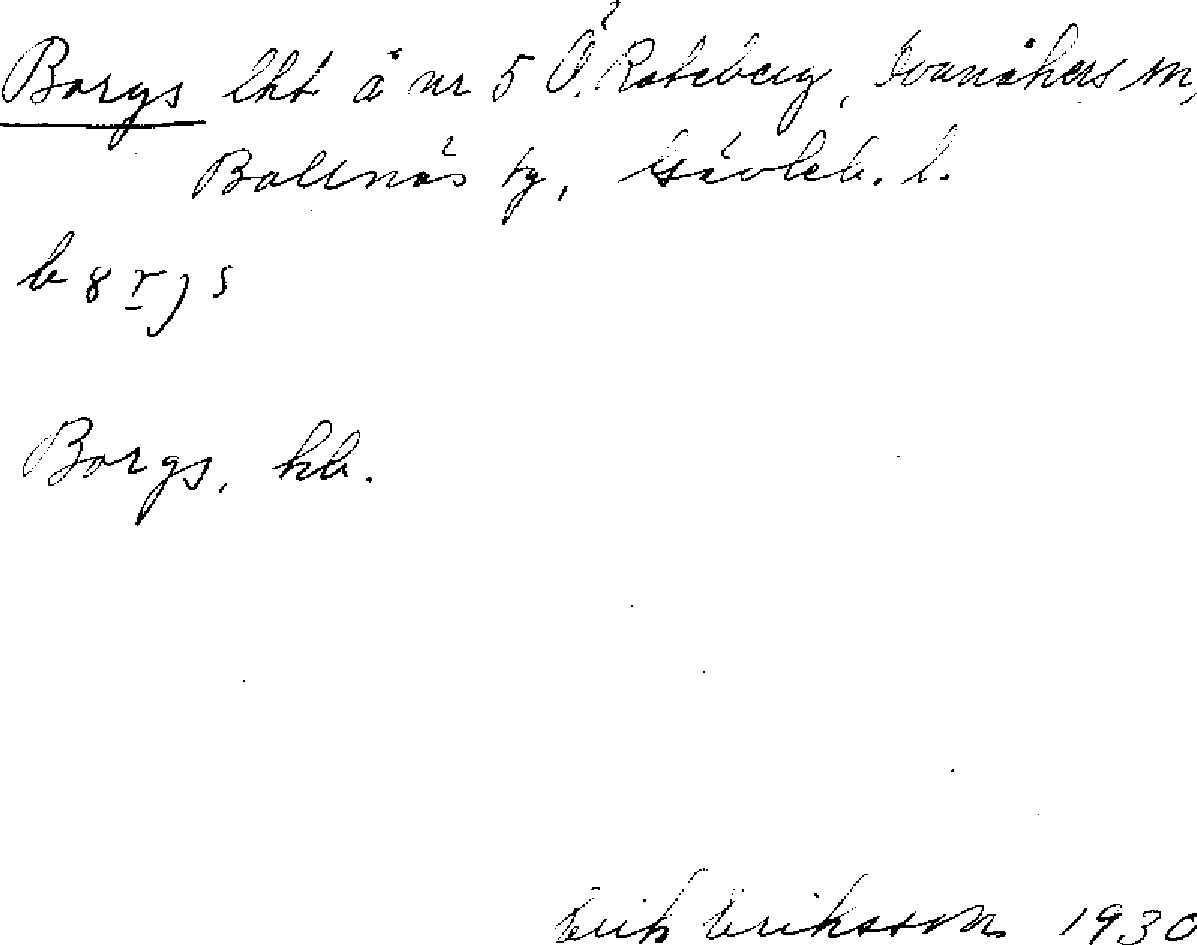 Borgs lht å nr 5 Ö. Roteberg, Svanåkers m,
Bollnäs tg, Gävleb. l.
b 8 r j s
Borgs, kb.
Erik Eriksson 1930